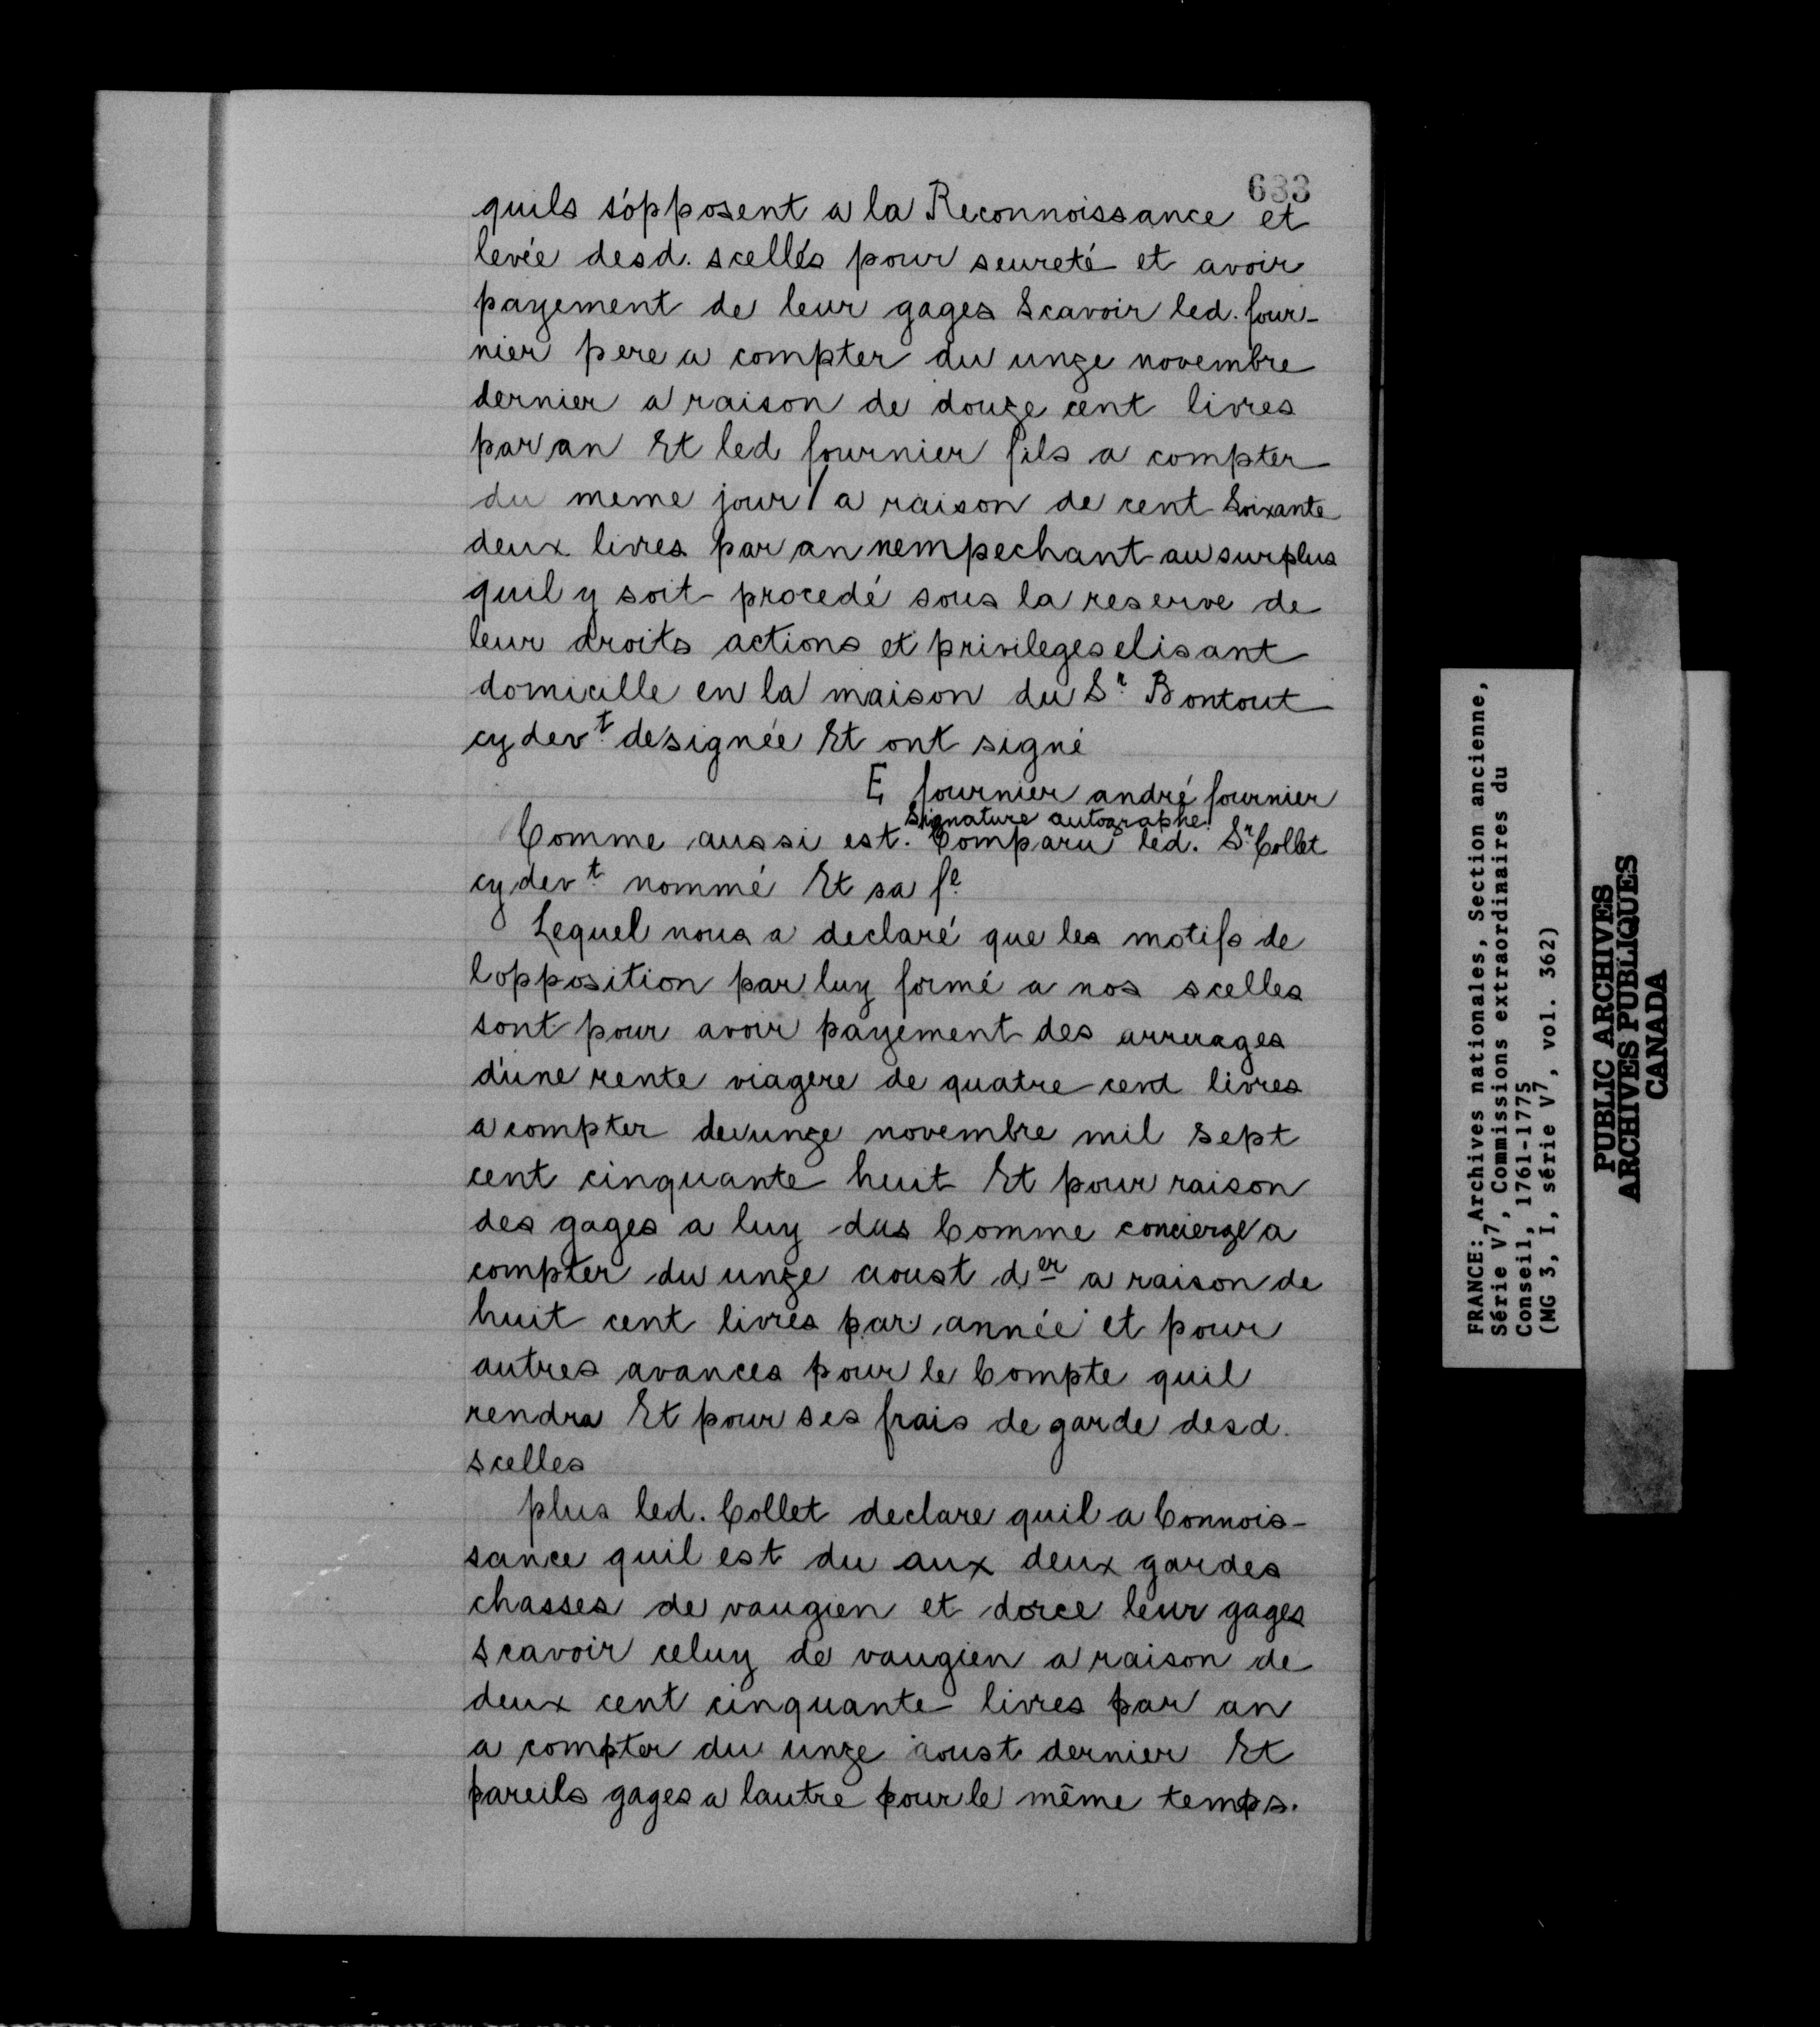 633
quils s'opposent a la Reconnoissance et
levée desd. scellés pour seureté et avoir
payement de leur gages Scavoir led. four-
nier pere a compter du unze novembre
dernier a raison de douze cent livres
par an Et led fournier fils a compter
du meme jour / a raison de cent Soixante
deux livres par an nempechant au surplus
quil y soit procedé sous la reserve de
leur droits actions et privileges elisant
domicille en la maison du Sr Bontout
cy devt designée Et ont signé
E fournier andré fournier
Signature autographe.
Comme aussi est. Comparu led. Sr Collet
cy devt nommé Et sa fe
Lequel nous a declaré que les motifs de
lopposition par luy formé a nos scelles
sont pour avoir payement des arrerages
d'une rente viagere de quatre cent livres
a compter de unze novembre mil sept
cent cinquante huit Et pour raison
des gages a luy dus Comme concierge a
compter du unze aoust der a raison de
huit cent livres par année et pour
autres avances pour le Compte quil
rendra Et pour ses frais de garde desd.
scelles
plus led. Collet declare quil a Connois-
sance quil est du aux deux gardes
chasses de vaugien et dorce leur gages
Scavoir celuy de vaugien a raison de
deux cent cinquante livres par an
a compter du unze aoust dernier Et
pareils gages a lautre pour le même temps.
FRANCE: Archives nationales, Section ancienne,
Série V7, Commissions extraordinaires du
Conseil, 1761-1775
(MG 3, I, série V7, vol. 362)
PUBLIC ARCHIVES
ARCHIVES PUBLIQUES
CANADA